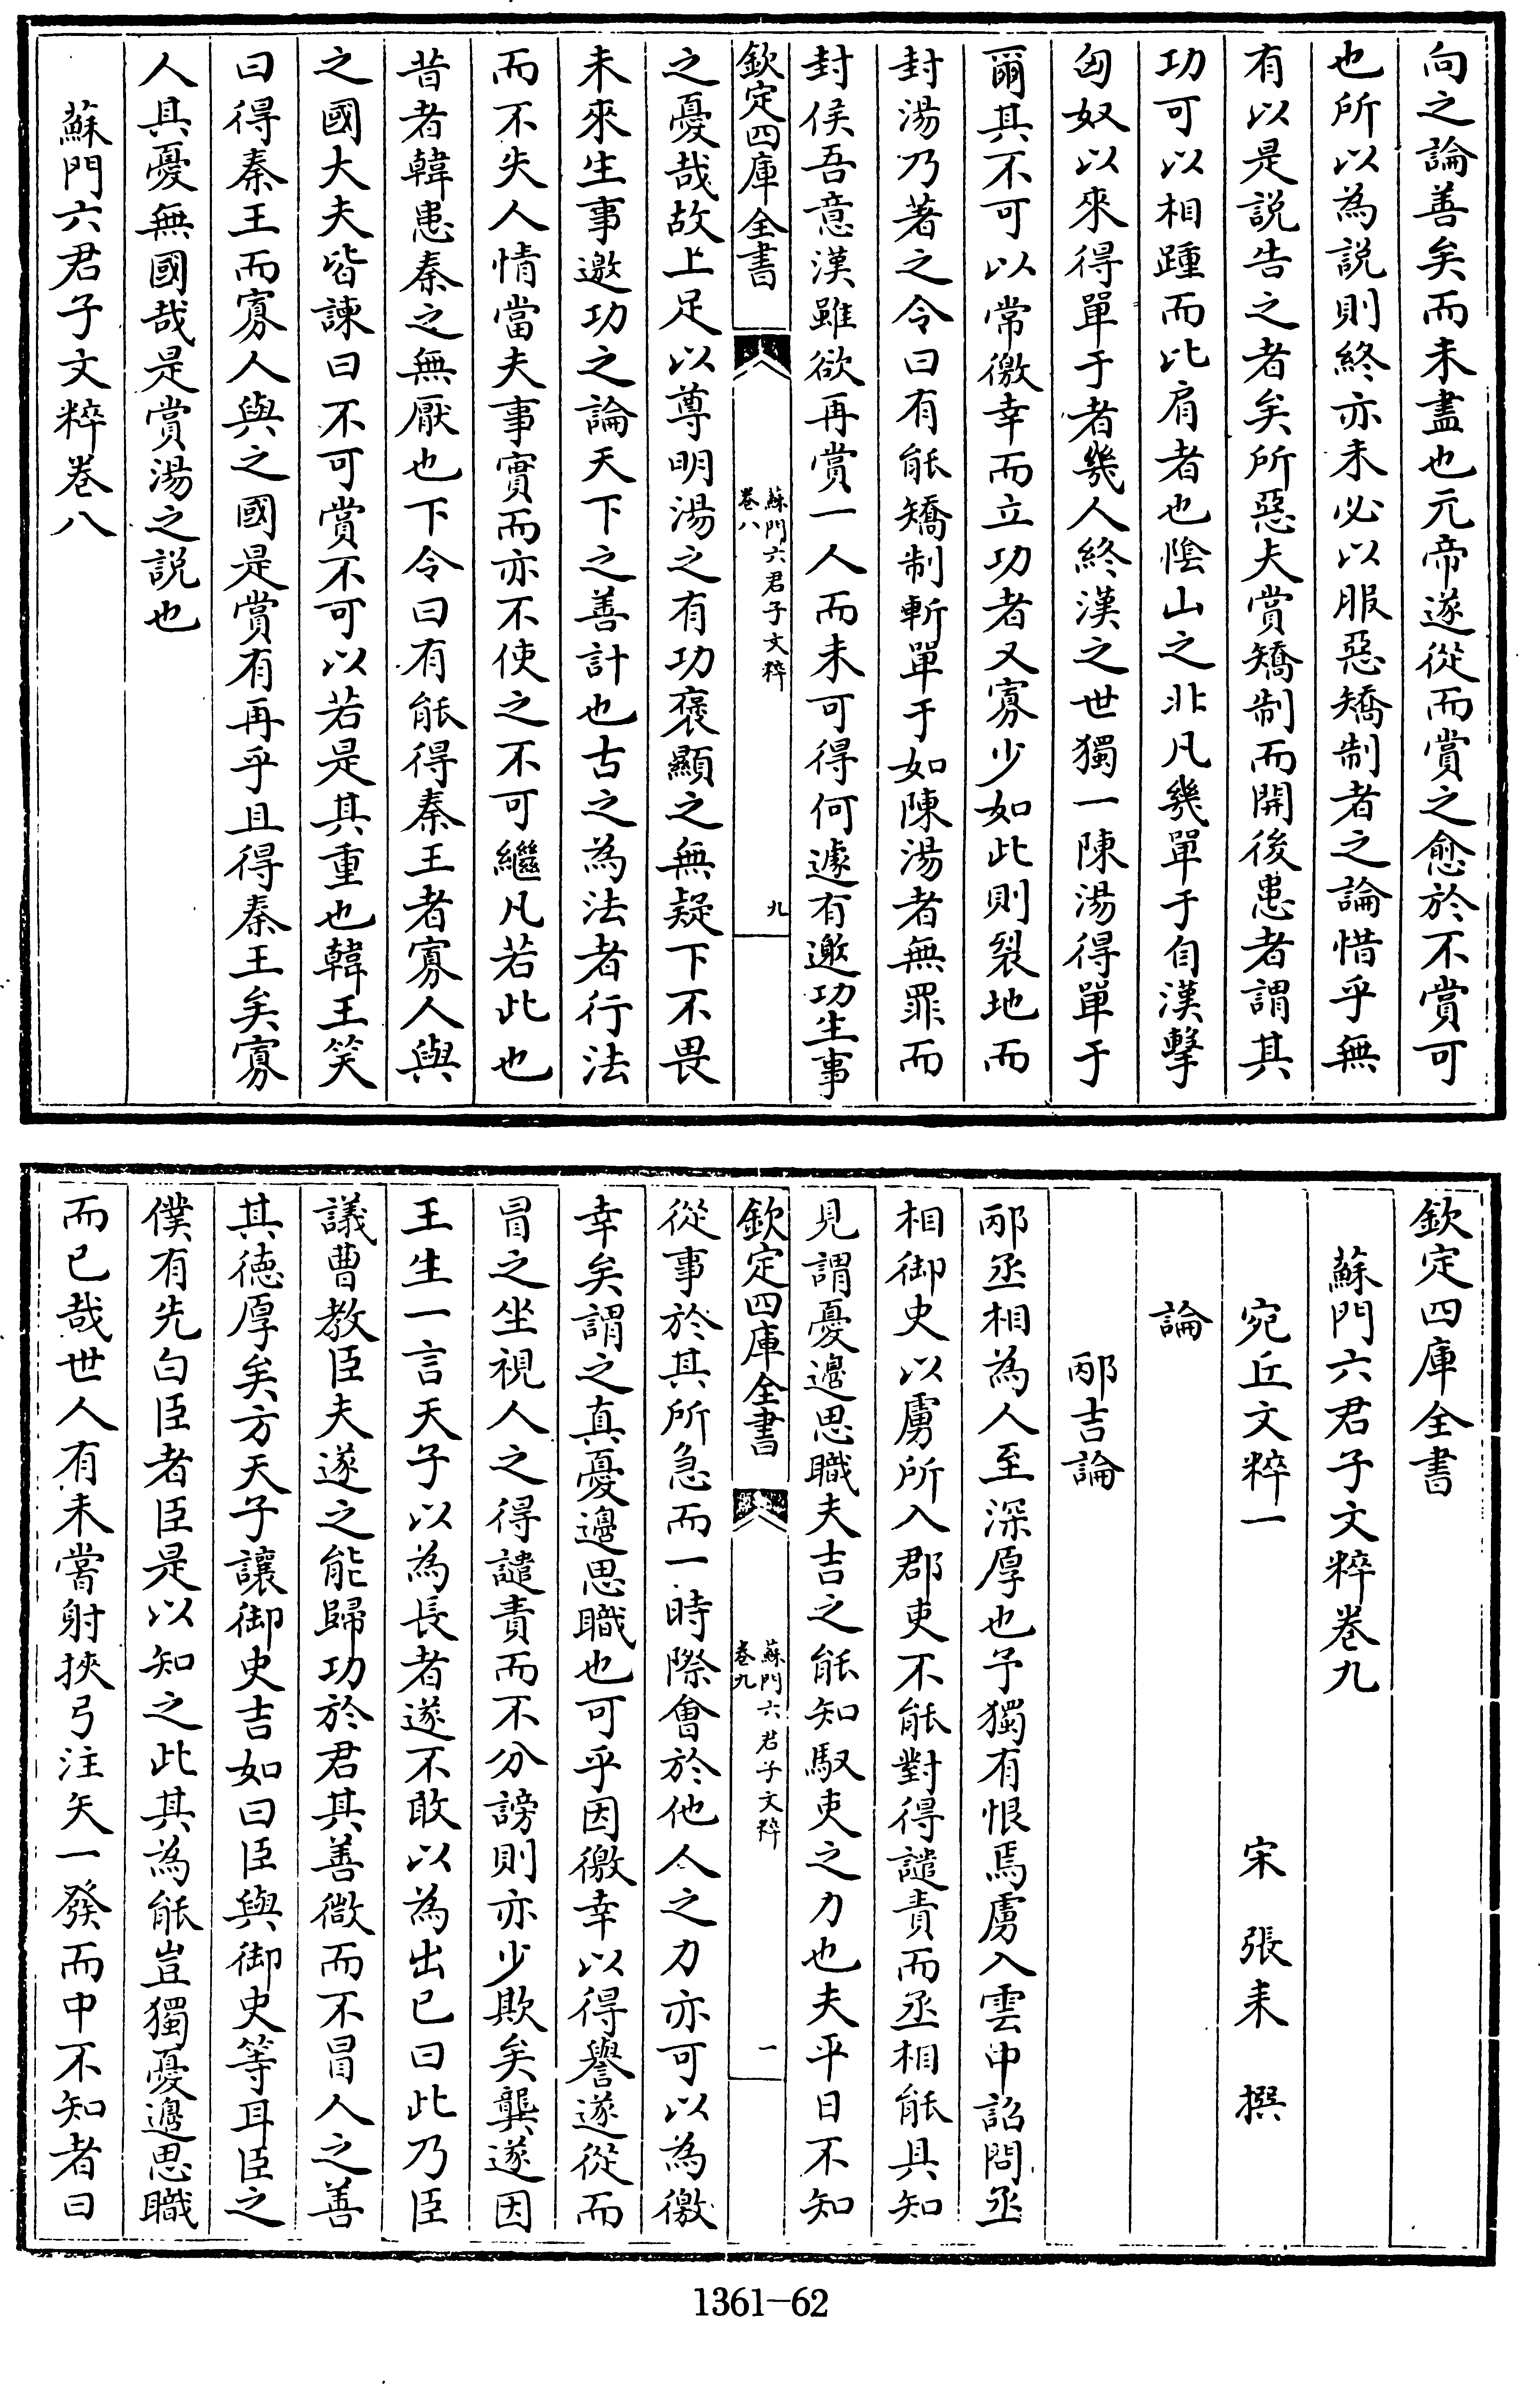 向之論善矣而未盡也元帝遂從而賞之愈於不賞可
也所以為説則終亦未必以服惡矯制者之論惜乎無
有以是説告之者矣所惡夫賞矯制而開後患者謂其
功可以相踵而比肩者也隂山之北凡幾單于自漢擊
匈奴以來得單于者幾人終漢之世獨一陳湯得單于
爾其不可以常徼幸而立功者又寡少如此則裂地而
封湯乃著之令曰有能矯制斬單于如陳湯者無罪而
封侯吾意漢雖欲再賞一人而未可得何遽有邀功生事
欽定四庫全書
蘇門六君子文粹
卷八
九
之憂哉故上足以尊明湯之有功褒顯之無疑下不畏
未來生事邀功之論天下之善計也古之為法者行法
而不失人情當夫事實而亦不使之不可繼凡若此也
昔者韓患秦之無厭也下令曰有能得秦王者寡人與
之國大夫皆諫曰不可賞不可以若是其重也韓王笑
曰得秦王而寡人與之國是賞有再乎且得秦王矣寡
人具憂無國哉是賞湯之説也
蘇門六君子文粹卷八
欽定四庫全書
蘇門六君子文粹卷九
宛丘文粹一 宋 張耒 撰
論
邴吉論
邴丞相為人至深厚也予獨有恨焉虜入雲中詔問丞
相御史以虜所入郡吏不能對得譴責而丞相能具知
見謂憂邊思職夫吉之能知馭吏之力也夫平日不知
欽定四庫全書
蘇門六君子文粹
卷九
一
從事於其所急而一時際會於他人之力亦可以為徼
幸矣謂之真憂邊思職也可乎因徼幸以得譽遂從而
冒之坐視人之得譴責而不分謗則亦少欺矣龔遂因
王生一言天子以為長者遂不敢以為出已曰此乃臣
議曹教臣夫遂之能歸功於君其善微而不冒人之善
其徳厚矣方天子讓御史吉如曰臣與御史等耳臣之
僕有先白臣者臣是以知之此其為能豈獨憂邊思職
而已哉世人有未嘗射挾弓注矢一發而中不知者曰
1361-62